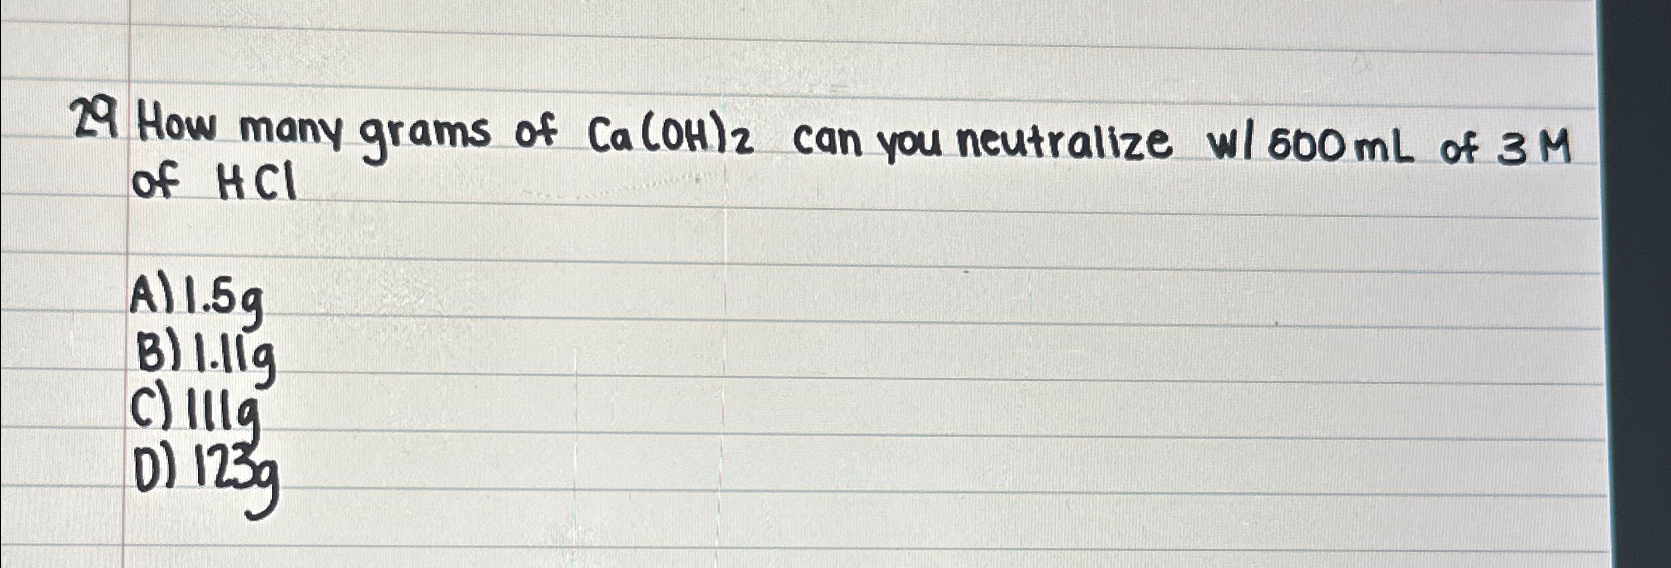 29 How many grams of Ca(OH)2 can you neutralize w/ 500mL of 3M
of HCl
A) 1.5g
B) 1.11g
C) 111g
D) 123g